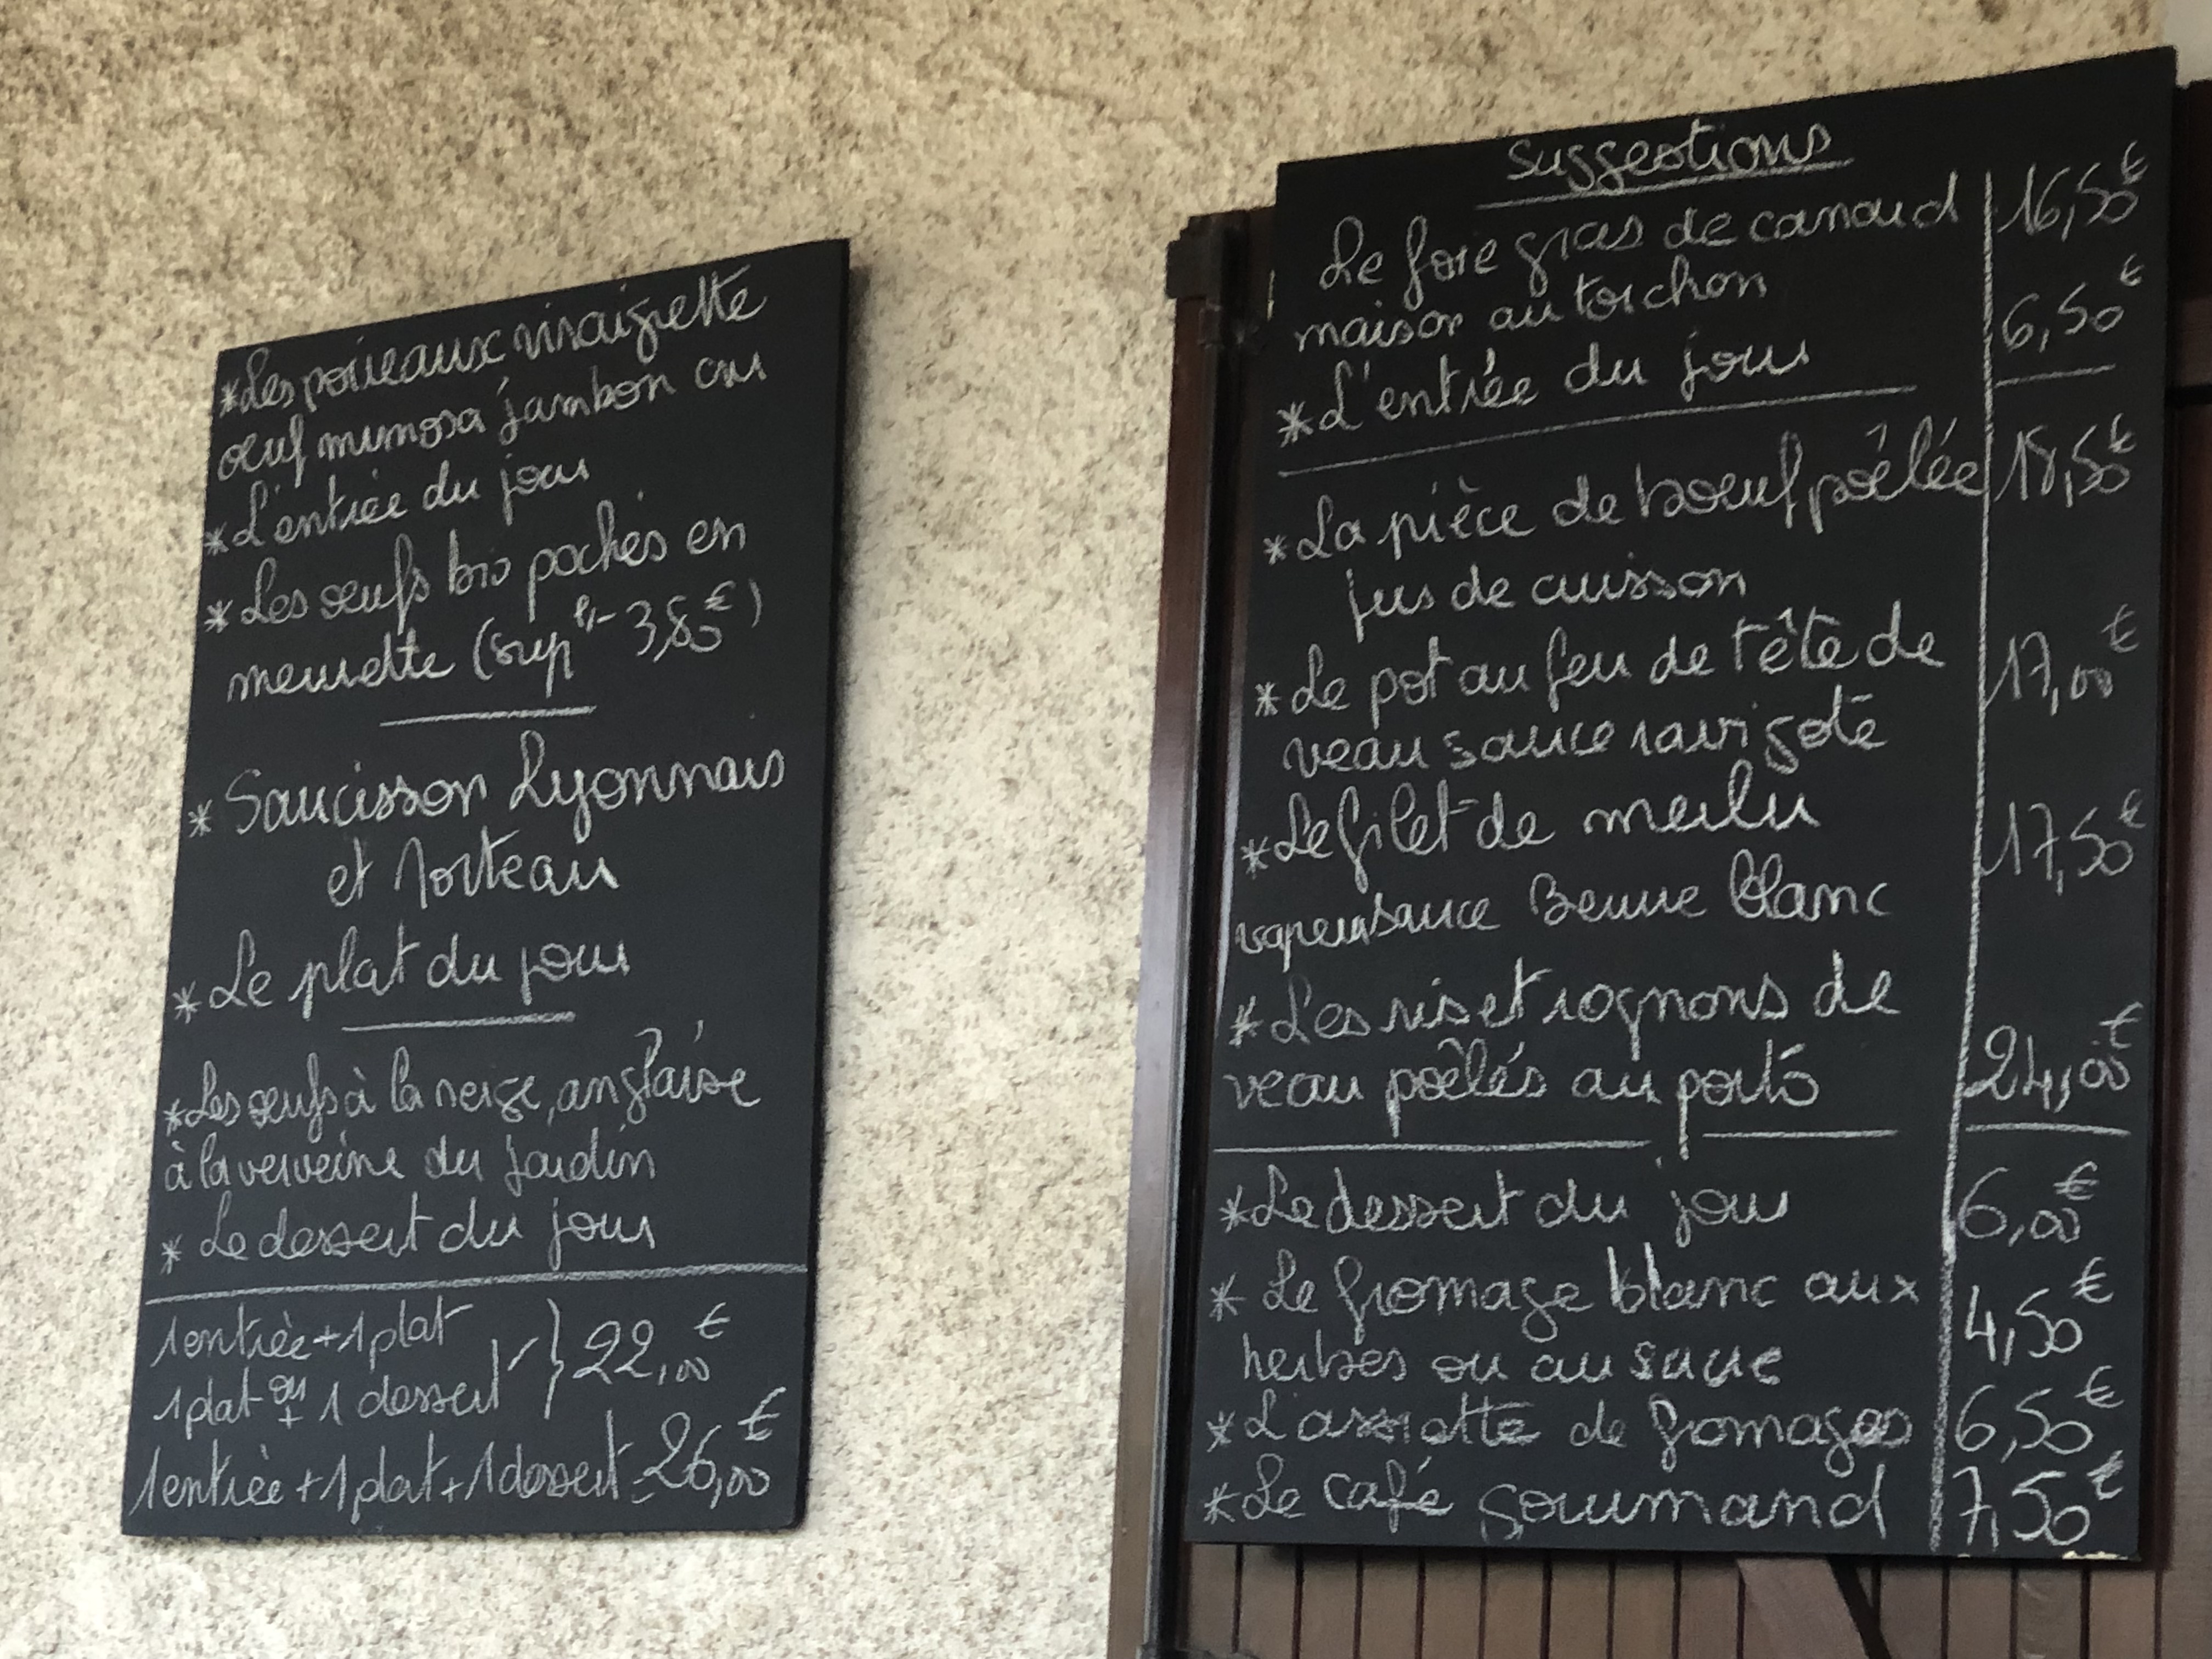 *Les poireaux vinaigrette
œuf mimosa jambon cru
*L'entrée du jour
*Les œufs bio pochés en
meurette (sup 3,80€)
*Saucisson Lyonnais
et Morteau
*Le plat du jour
*Les œufs à la neige, anglaise
à la verveine du jardin
*Le dessert du jour
1 entrée + 1 plat
ou
1 plat + 1 dessert } 22,00€
1 entrée + 1 plat + 1 dessert = 26,00€
Suggestions
Le foie gras de canard 16,50€
maison au torchon
*L'entrée du jour 6,50€
*La pièce de bœuf poêlée 18,50€
jus de cuisson
*Le pot au feu de tête de 17,00€
veau sauce ravigote
*Le filet de merlu 17,50€
vapeur sauce Beurre Blanc
*Les ris et rognons de
veau poêlés au porto 24,00€
*Le dessert du jour 6,00€
*Le fromage blanc aux 4,50€
herbes ou au sucre
*L'assiette de fromages 6,50€
*Le café gourmand 7,50€